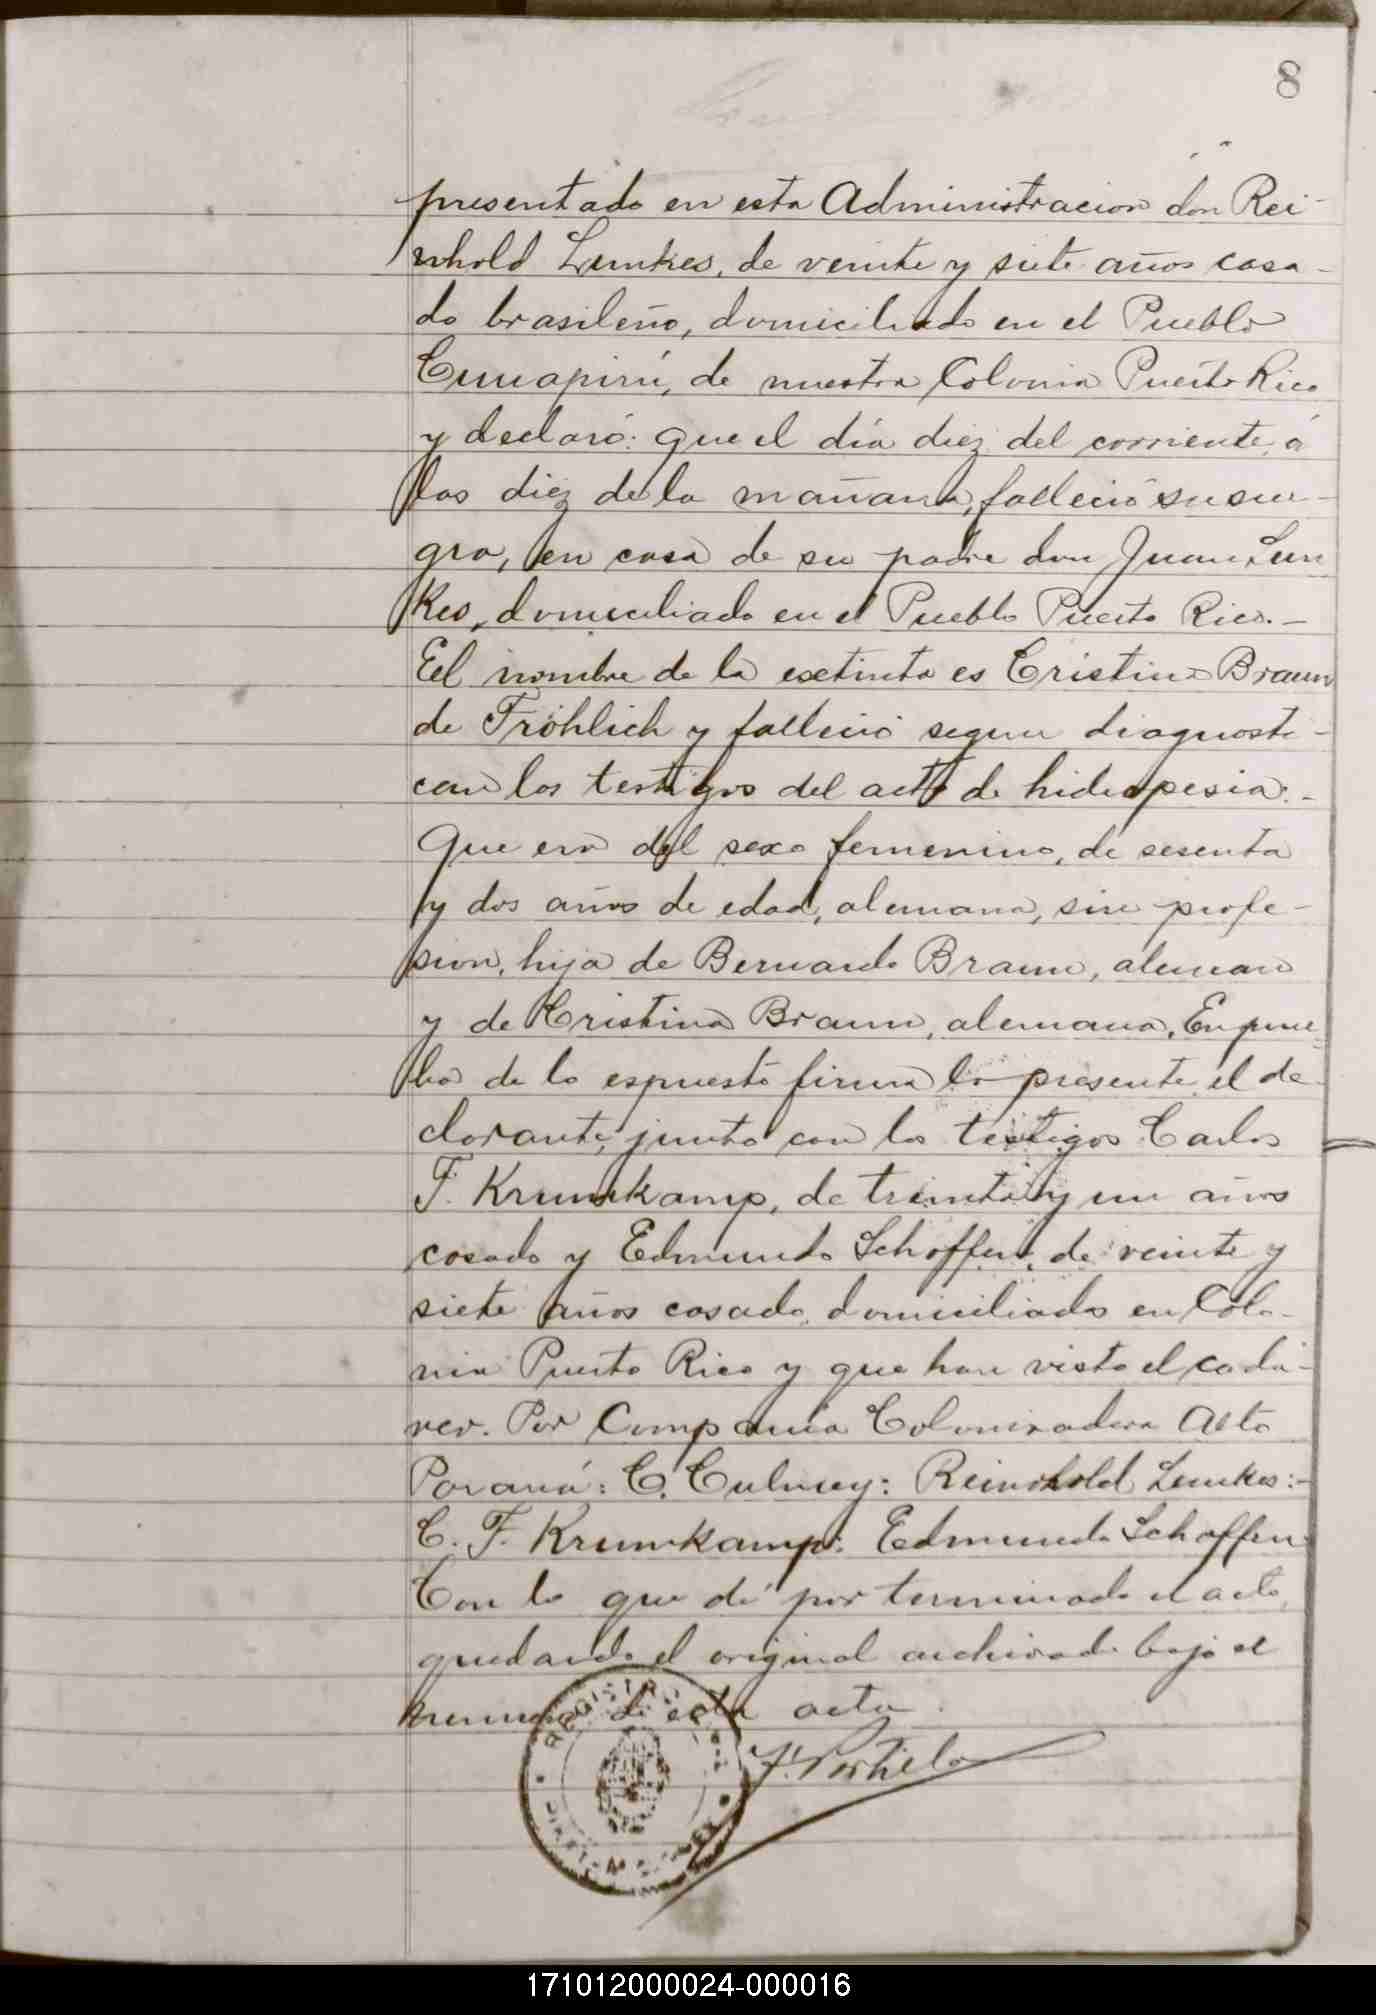 8
presentado en esta Administracion don Rei-
nhold Lenkes, de veinte y siete años casa-
do brasileño, domiciliado en el Pueblo
Cuñapirú, de nuestra Colonia Puerto Rico
y declaró: que el día diez del corriente, á
las diez de la mañana, falleció su sue-
gra, en casa de su padre don Juan Len
kes, domiciliado en el Pueblo Puerto Rico. -
Eel nombre de la extinta es Cristina Braun
de Fröhlich y falleció segun diagnosti-
can los testigos del acto de hidropesia. -
Que era del sexo femenino, de sesenta
y dos años de edad, alemana, sin profe-
sion, hija de Bernardo Braun, aleman
y de Cristina Braun, alemana. En prue-
ba de lo espuesto firma la presente el de
clarante, junto con los testigos Carlos
F. Krumkamp, de treinta y un años
casado y Edmundo Schoffen, de veinte y
siete años casado, domiciliados en Colo-
nia Puerto Rico y que han visto el cadá-
ver. Por Compañia Colonizadora Alto
Paraná: C. Culmey: Reinohold Lenkes: -
C. F. Krumkamp: Edmundo Schoffen.
Con lo que dí por terminado el acto,
quedando el original archivado bajo el
numero de esta acta.
REGISTRO
F. Portielo
171012000024-000016